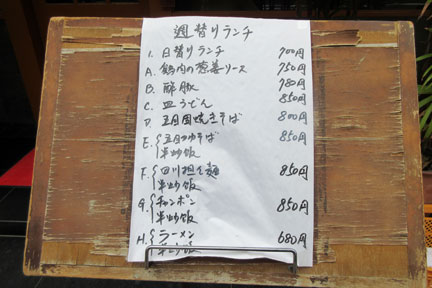 週替りランチ
1. 日替りランチ 700円
A. 鶏肉の葱姜ソース 750円
B. 酢豚 780円
C. 皿うどん 850円
D. 五目固焼きそば 800円
E. 五目つゆそば 850円
半炒飯
F. 四川担々麺 850円
半炒飯
G. チャンポン 850円
半炒飯
H. ラーメン 680円
半炒飯